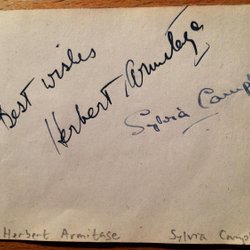 Best wishes
Herbert Armitage
Sylvia Camp
Herbert Armitage
Sylvia Camp